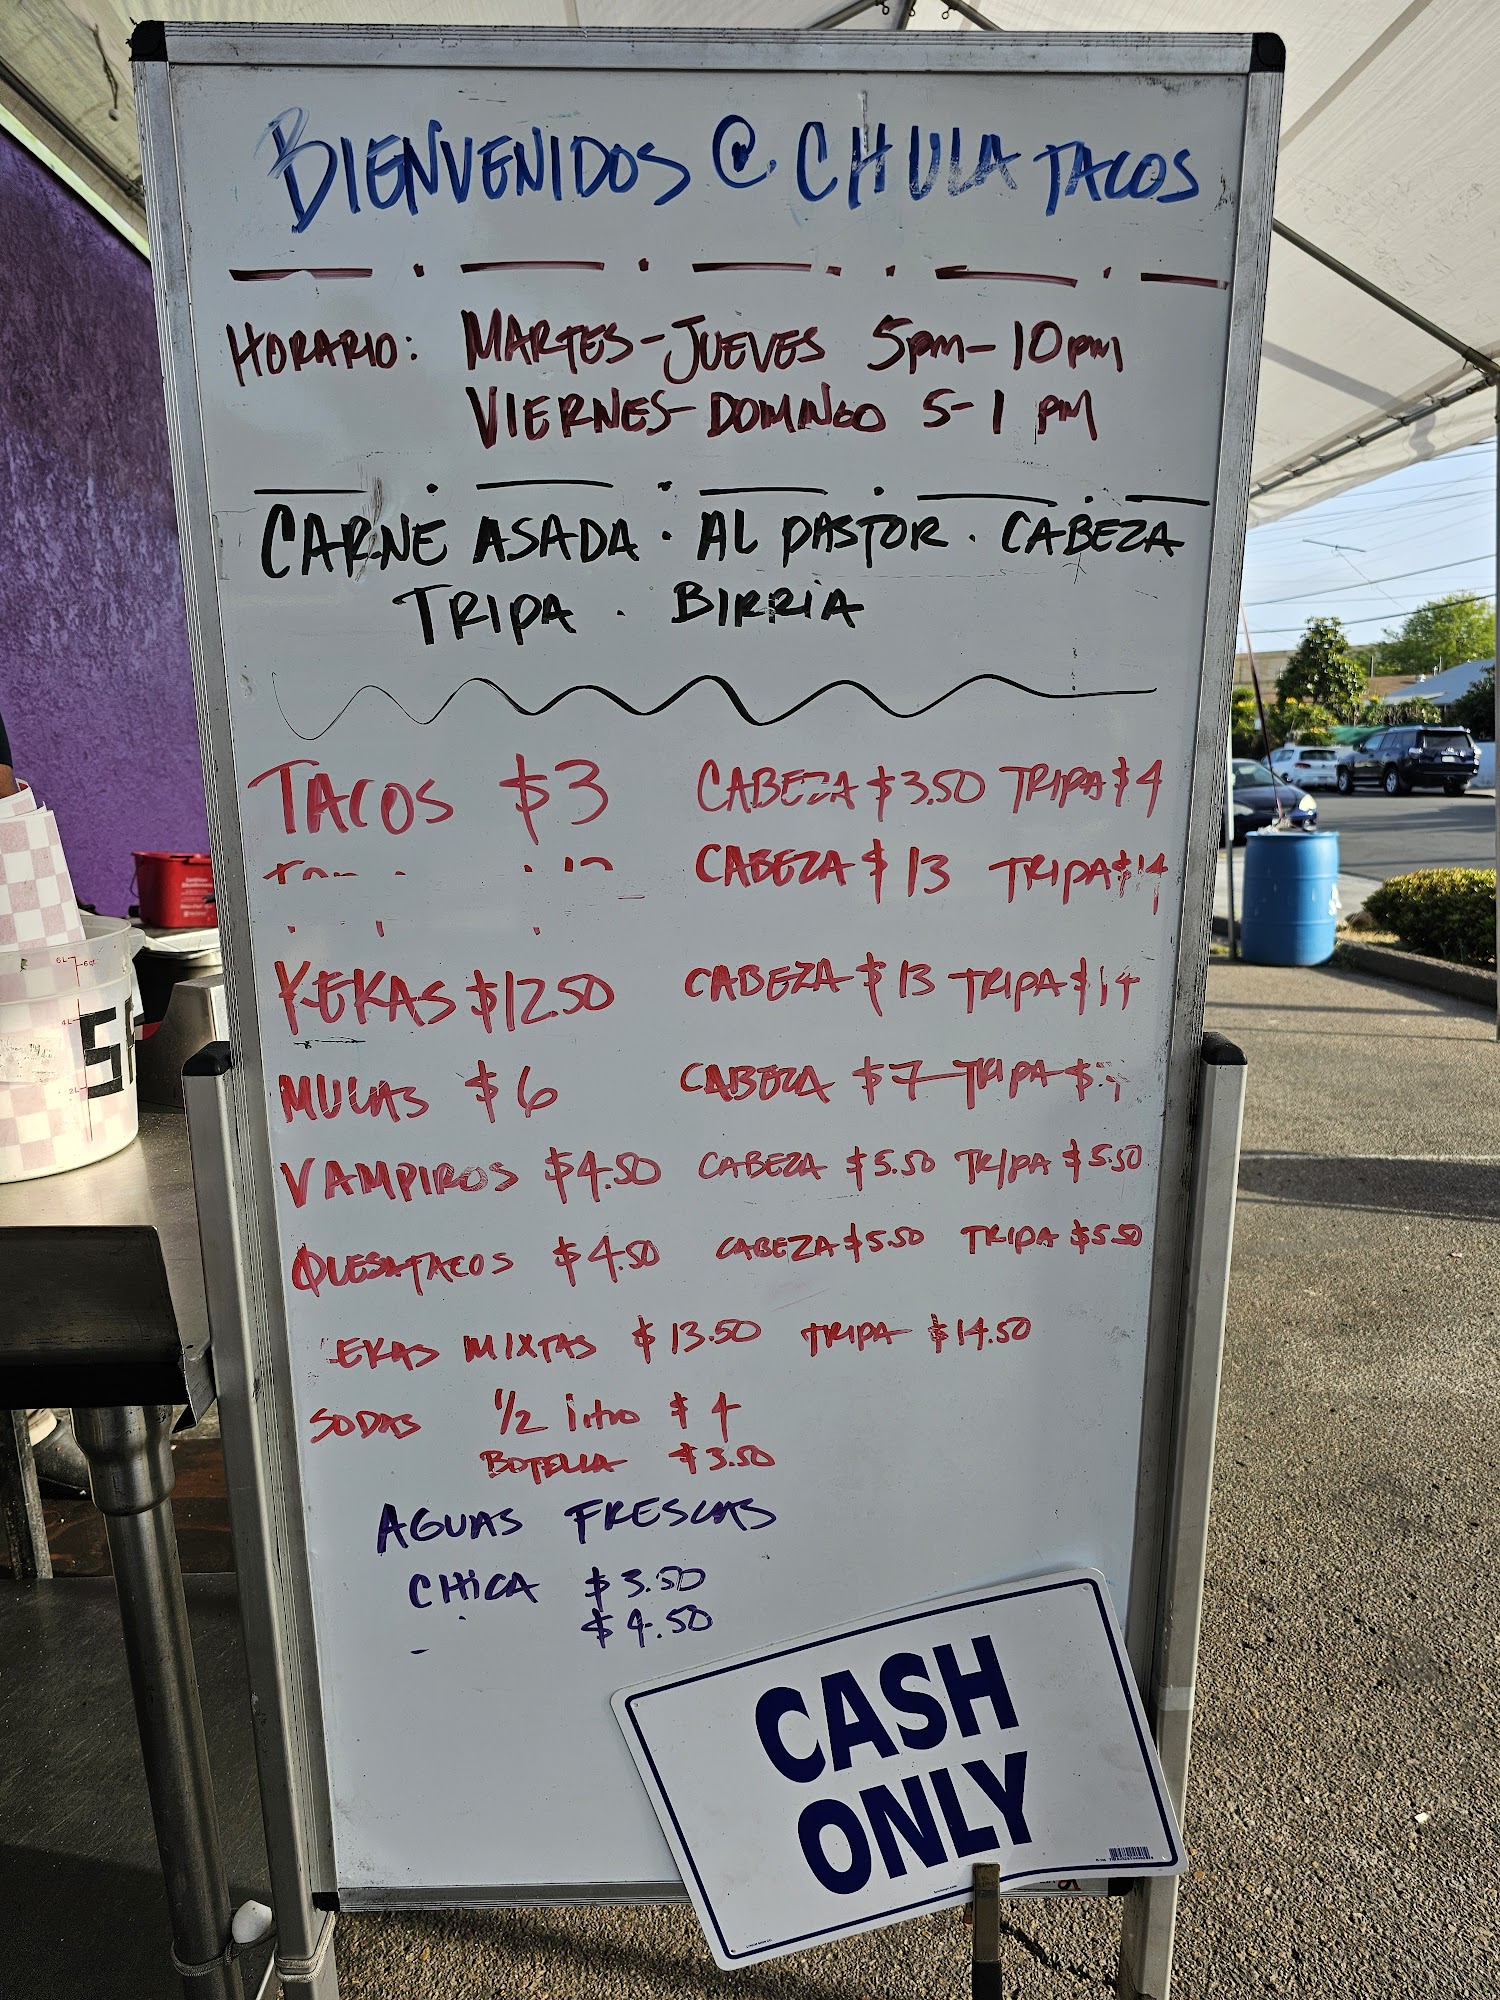 BIENVENIDOS @ CHULA TACOS
HORARIO: MARTES-JUEVES 5pm-10pm
VIERNES-DOMINGO 5-1 PM
CARNE ASADA · AL PASTOR · CABEZA
TRIPA · BIRRIA
TACOS $3 CABEZA $3.50 TRIPA $4
CABEZA $13 TRIPA $14
KEKAS $12.50 CABEZA $13 TRIPA $14
MULAS $6 CABEZA $7 TRIPA $
VAMPIROS $4.50 CABEZA $5.50 TRIPA $5.50
QUESATACOS $4.50 CABEZA $5.50 TRIPA $5.50
EKAS MIXTAS $13.50 TRIPA $14.50
SODAS 1/2 litro $4
BOTELLA $3.50
AGUAS FRESCAS
CHICA $3.50
$4.50
CASH
ONLY